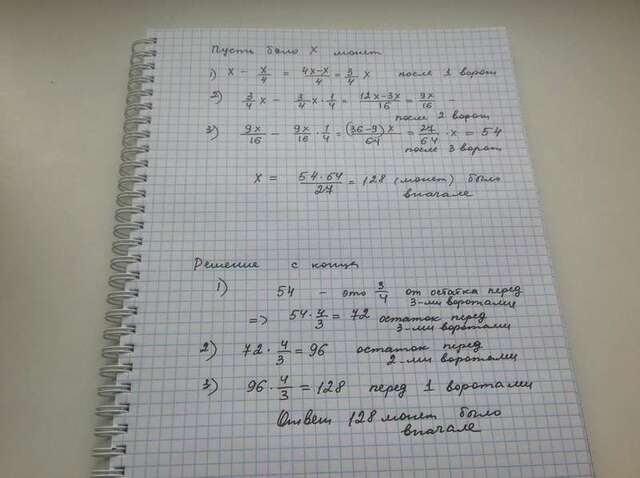 Пусть было X монет
1) x - x/4 = (4x-x)/4 = 3/4 x после 1 ворот
2) 3/4 x - 3/4 x · 1/4 = (12x-3x)/16 = 9x/16 -
после 2 ворот
3) 9x/16 - 9x/16 · 1/4 = (36-9)x/64 = 27/64 · x = 54
после 3 ворот
x = 54·64/27 = 128 (монет) было
вначале
Решение с конца
1) 54 - это 3/4 от остатка перед
3-ми воротами
=> 54 · 4/3 = 72 остаток перед
3-ми воротами
2) 72 · 4/3 = 96 остаток перед
2-ми воротами
3) 96 · 4/3 = 128 перед 1 воротами
Ответ 128 монет было
вначале